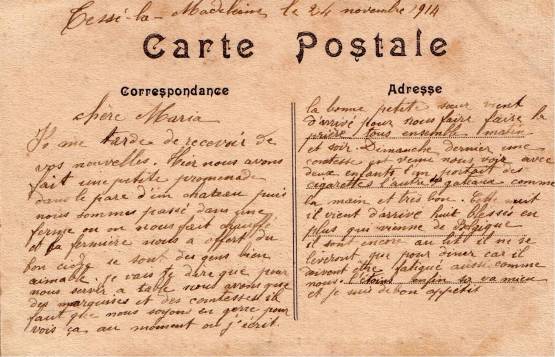 Tessé-la-Madeleine le 24 novembre 1914
Carte Postale
Correspondance
chère Maria
Il me tarde de recevoir de
vos nouvelles. Hier nous avons
fait une petite promenade
dans le parc d'un chateau puis
nous sommes passé dans une
ferme ou on nous fait
et la fermière nous a offert du
bon cidre se sont des gens bien
aimable je vais te dire que pour
nous servir a table nous avons que
des marquises et des comtesses il
faut que nous soyon en gerre pour
vois ça au moment ou j'écrit.
Adresse
la bonne petite sœur vient
d'arrivé pour nous faire faire la
prière tous ensemble matin
et soir. Dimanche dernier une
contesse est venu nous voir avec
deux enfants l'un portait des
cigarettes l'autre des gateaux comme
la main et très bon. Cette nuit
il vient d'arrivé huit blessés en
plus qui vienne de Belgique
il sont encore au lit il ne se
leveront que pour diner car il
doivent etre fatigué aussi comme
nous. enfin sa va mieu
et je suis de bon appétit